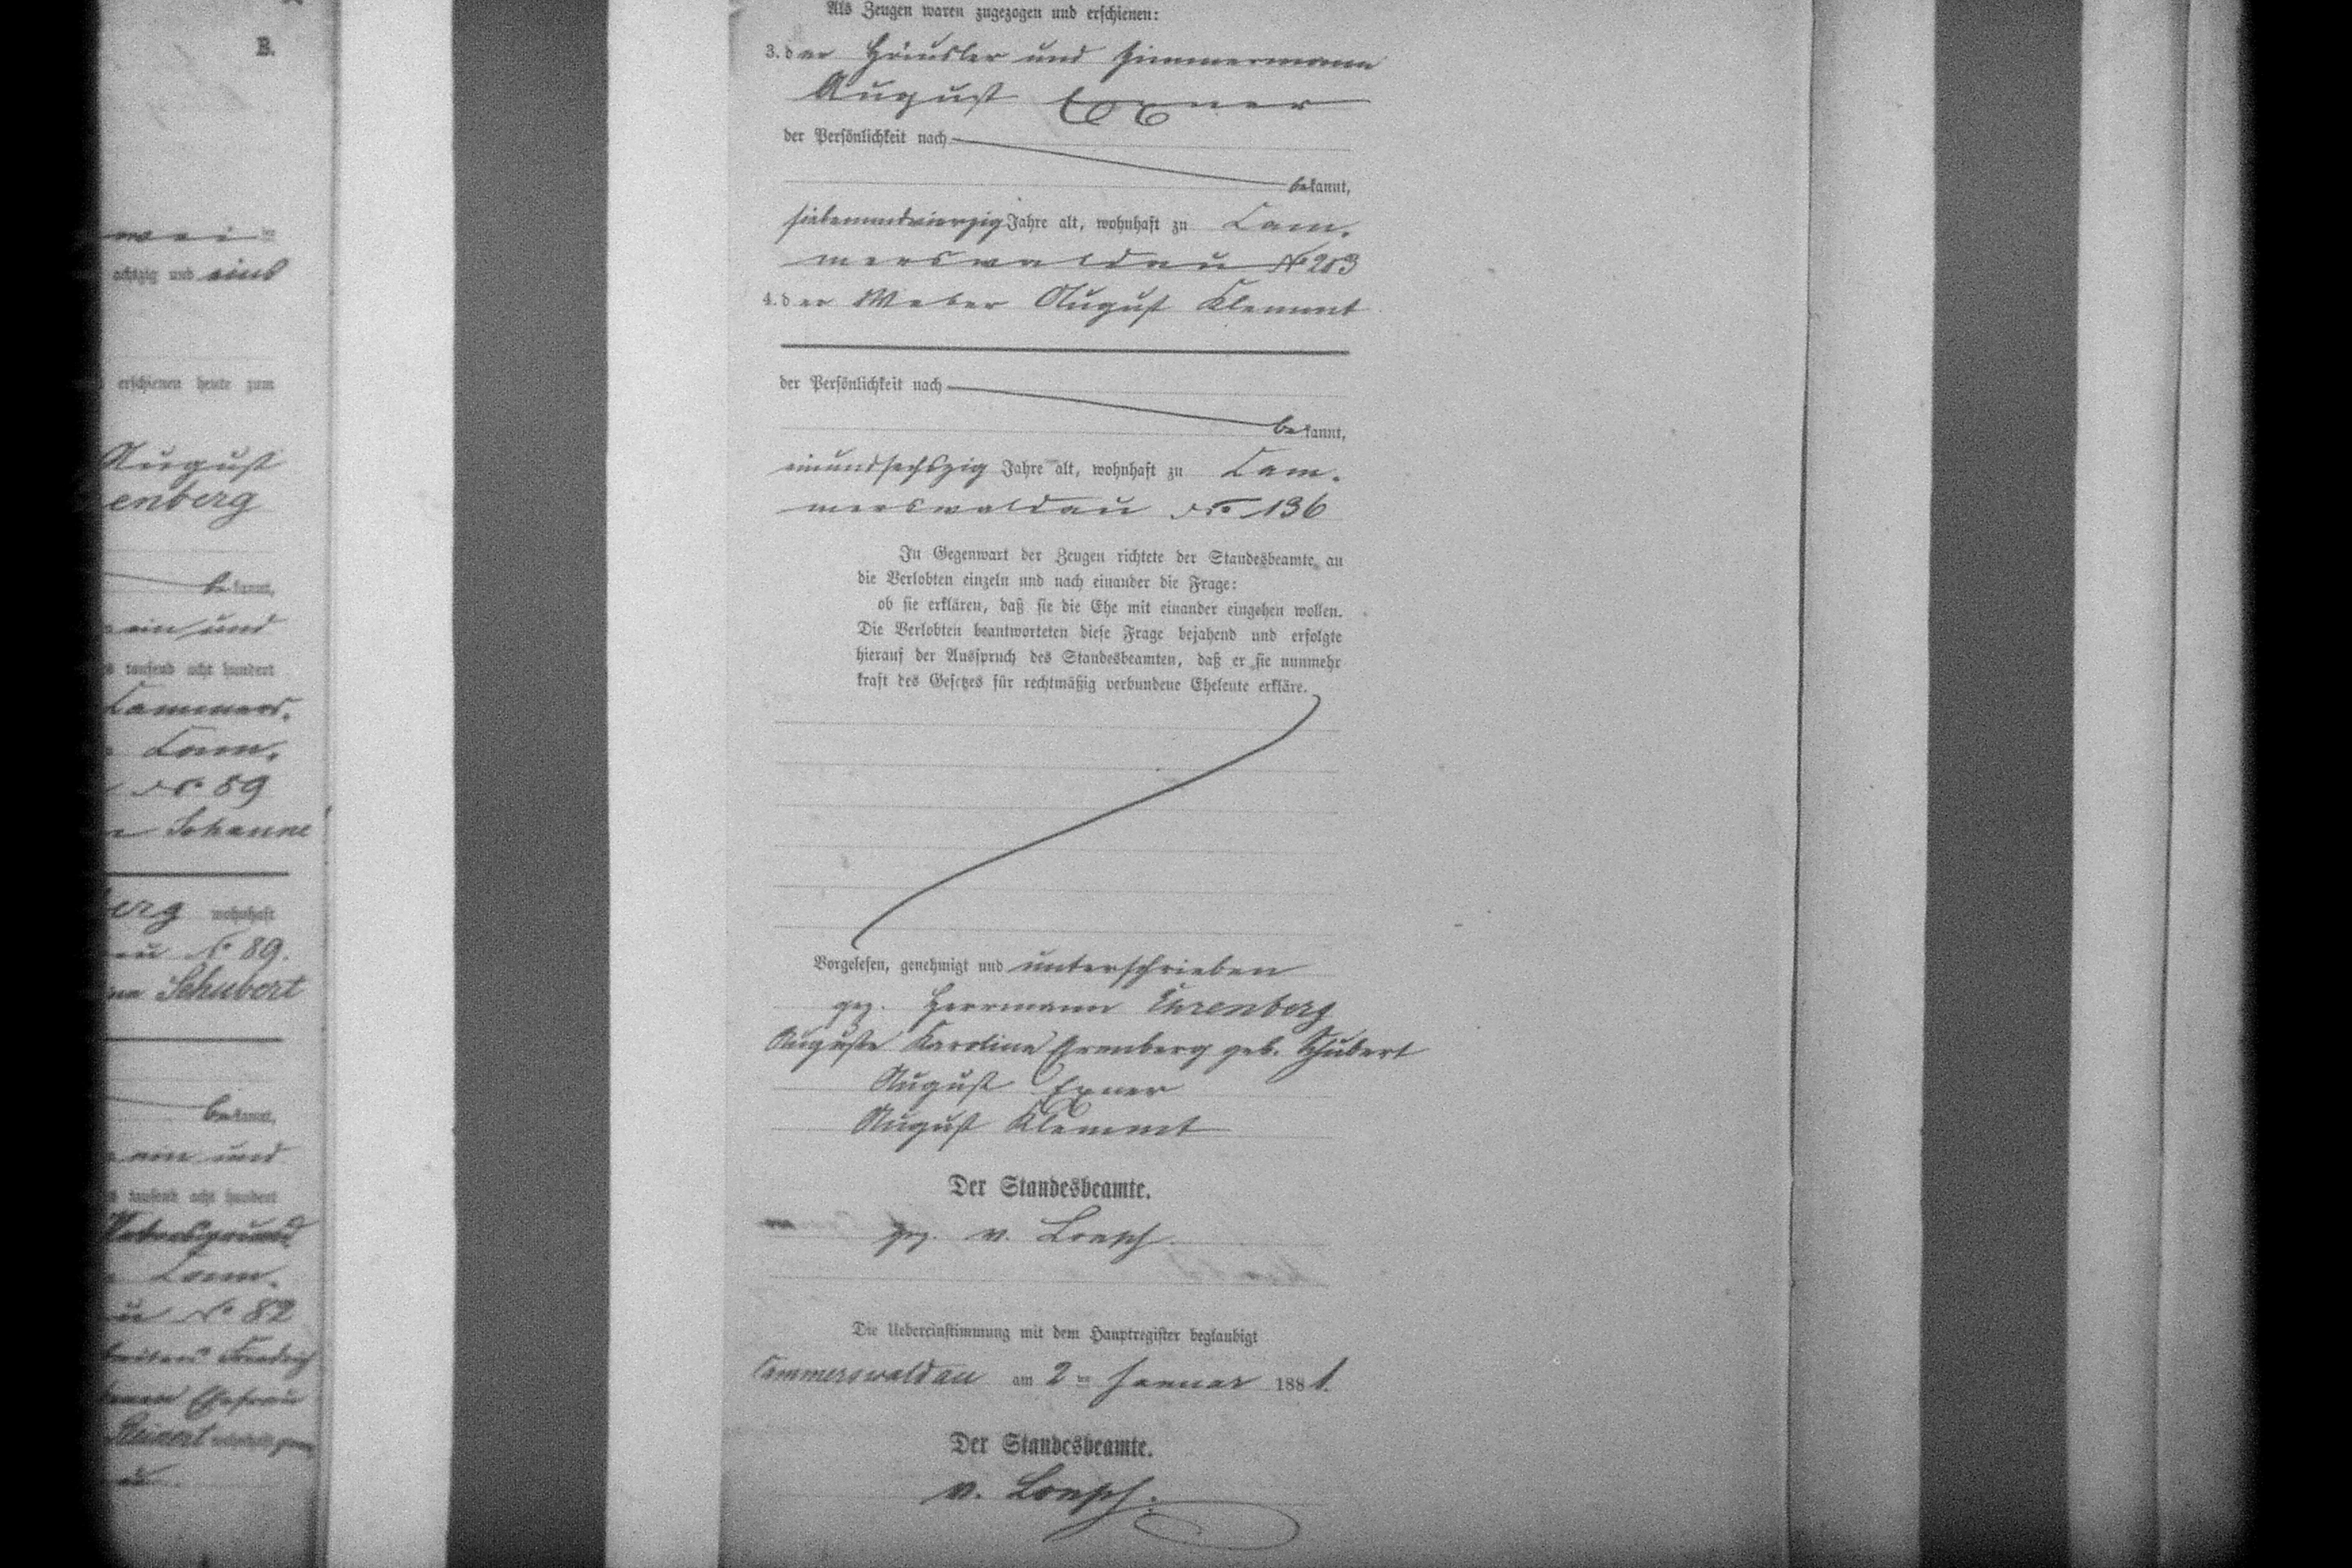 B.
achtzig und eins
erschienen heute zum
August
enberg
bekannt,
ein und
tausend acht hundert
Cammers.
Cam.
No 59
Johanne
erg wohnhaft
au No 89.
Schubert
bekannt,
ein und
tausend acht hundert
Cam.
au No 82
Friedrich
Ehefrau
Reinert
Als Zeugen waren zugezogen und erschienen:
3. der Häusler und Zimmermann
August Exner
der Persönlichkeit nach
bekannt,
siebenundvierzig Jahre alt, wohnhaft zu Cam.
merswaldau No 203
4. der Weber August Klemmt
der Persönlichkeit nach
bekannt,
einundsechszig Jahre alt, wohnhaft zu Cam.
merswaldau No 136
In Gegenwart der Zeugen richtete der Standesbeamte an
die Verlobten einzeln und nach einander die Frage:
ob sie erklären, daß sie die Ehe mit einander eingehen wollen.
Die Verlobten beantworteten diese Frage bejahend und erfolgte
hierauf der Ausspruch des Standesbeamten, daß er sie nunmehr
kraft des Gesetzes für rechtmäßig verbundene Eheleute erkläre.
Vorgelesen, genehmigt und unterschrieben
gez. Herrmann Ehrenberg
Auguste Karoline Ehrenberg geb. Schubert
August Exner
August Klemmt
Der Standesbeamte.
gez. v. Loesch
Die Uebereinstimmung mit dem Hauptregister beglaubigt
Cammerswaldau am 2 ten Januar 1881.
Der Standesbeamte.
v. Loesch.